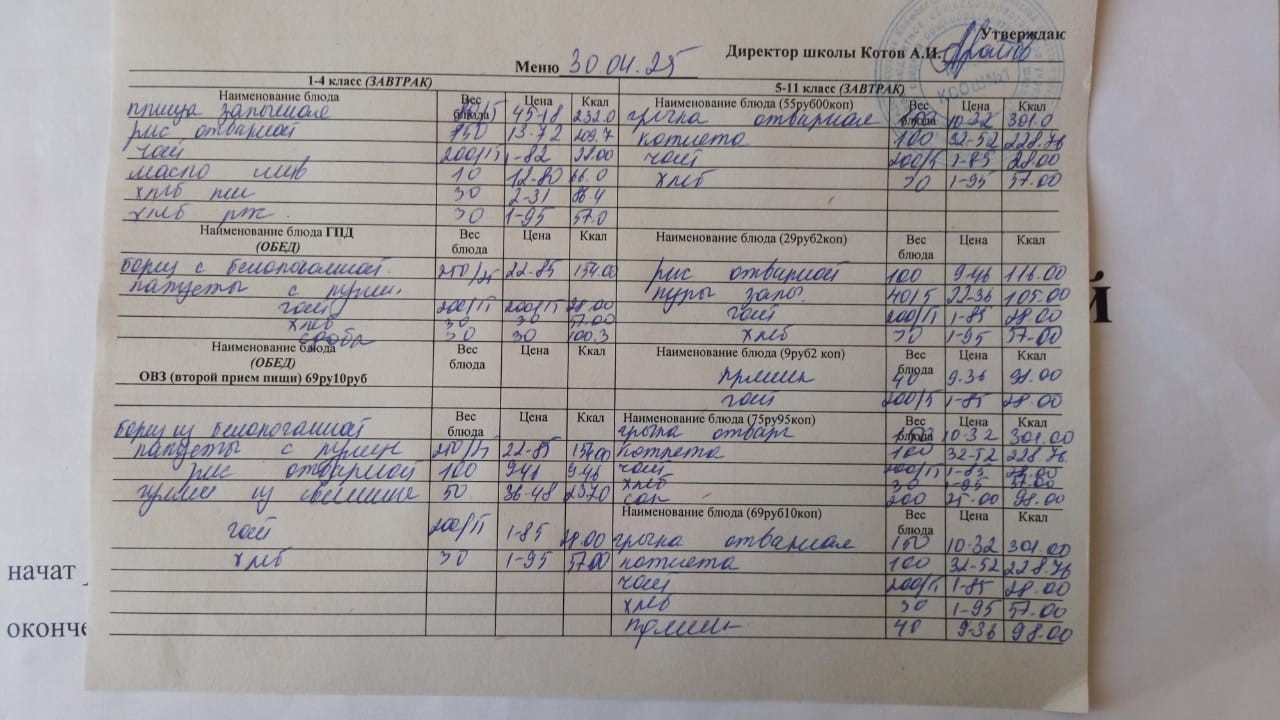 Утверждаю
Директор школы Котов А.И.
Меню 30.04.25
1-4 класс (ЗАВТРАК)
Наименование блюда Вес блюда Цена Ккал
птица запеченая 45-18 232.0
рис отварной 150 13-72 209.7
чай 200/15 1-82 28.00
масло слив 10 12-80 66.0
хлеб пш 30 2-31 86.4
хлеб рж. 30 1-95 57.0
Наименование блюда ГПД (ОБЕД) Вес блюда Цена Ккал
борщ с белокочанной 250/25 22-85 154.00
чай 200/15 200/15 28.00
хлеб 30 30 57.00
30 30 100.3
Наименование блюда (ОБЕД) Вес блюда Цена Ккал
ОВЗ (второй прием пищи) 69ру10руб
Вес блюда Цена Ккал
борщ из белокочанной
250/25 22-85 154.00
рис отварной 100 9-46 9-46
гуляш из свинины 50 36-48 237.0
чай 200/15 1-85 28.00
хлеб 30 1-95 57.00
5-11 класс (ЗАВТРАК)
Наименование блюда (55руб00коп) Вес блюда Цена Ккал
гречка отварная 150 10-32 301.0
котлета 100 32-52 228.76
чай 200/15 1-85 28.00
хлеб 30 1-95 57.00
Наименование блюда (29руб2коп) Вес блюда Цена Ккал
рис отварной 100 9-46 116.00
куры запе. 40/5 22-36 105.00
чай 200/15 1-85 28.00
хлеб 30 1-95 57.00
Наименование блюда (9руб2 коп) Вес блюда Цена Ккал
пряник 40 9-36 98.00
чай 200/15 1-85 28.00
Наименование блюда (75ру95коп) Вес блюда Цена Ккал
гречка отварн 150 10-32 301.00
котлета 100 32-52 228.76
чай 200/15 1-85 28.00
хлеб 30 1-95 57.00
сок 200 21-00 98.00
Наименование блюда (69руб10коп) Вес блюда Цена Ккал
гречка отварная 150 10-32 301.00
котлета 100 32-52 228.76
чай 200/15 1-85 28.00
хлеб 30 1-95 57.00
пряник 40 9-36 98.00
й
начат
оконче